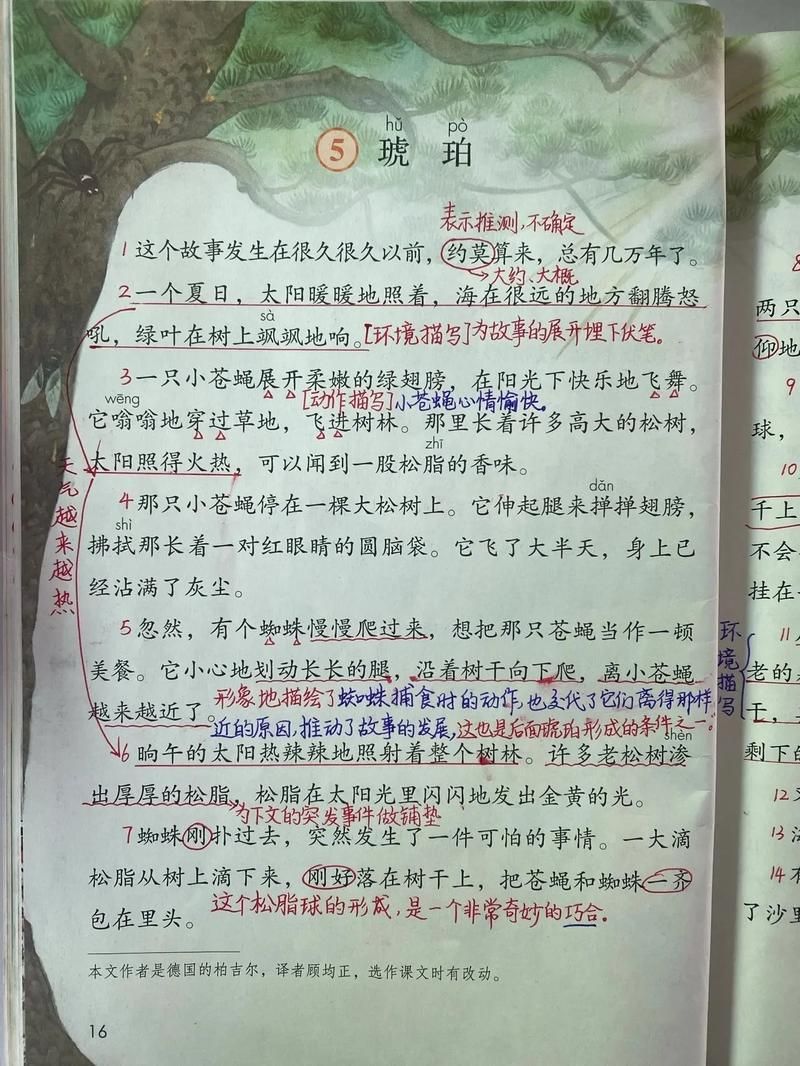 hǔ pò
5 琥珀
表示推测,不确定
1 这个故事发生在很久很久以前,约莫算来,总有几万年了。
→大约、大概
2 一个夏日,太阳暖暖地照着,海在很远的地方翻腾怒
sà
吼,绿叶在树上飒飒地响。[环境描写]为故事的展开埋下伏笔。
3 一只小苍蝇展开柔嫩的绿翅膀,在阳光下快乐地飞舞。
wēng
[动作描写]小苍蝇心情愉快。
它嗡嗡地穿过草地,飞进树林。那里长着许多高大的松树,
zhī
太阳照得火热,可以闻到一股松脂的香味。
天气越来越热
dǎn
4 那只小苍蝇停在一棵大松树上。它伸起腿来掸掸翅膀,
shì
拂拭那长着一对红眼睛的圆脑袋。它飞了大半天,身上已
经沾满了灰尘。
5 忽然,有个蜘蛛慢慢爬过来,想把那只苍蝇当作一顿
美餐。它小心地划动长长的腿,沿着树干向下爬,离小苍蝇
越来越近了。
形象地描绘了蜘蛛捕食时的动作,也交代了它们离得那样
近的原因,推动了故事的发展,这也是后面琥珀形成的条件之一。
shèn
6 晌午的太阳热辣辣地照射着整个树林。许多老松树渗
出厚厚的松脂,松脂在太阳光里闪闪地发出金黄的光。
为下文的突发事件做铺垫
7 蜘蛛刚扑过去,突然发生了一件可怕的事情。一大滴
松脂从树上滴下来,刚好落在树干上,把苍蝇和蜘蛛一齐
包在里头。
这个松脂球的形成,是一个非常奇妙的巧合.
本文作者是德国的柏吉尔,译者顾均正,选作课文时有改动。
16
8
两只
仰地
9
球,
10
千上
不会
挂在
11
环境描写
老的
干,
剩下的
12
13
14
了沙里